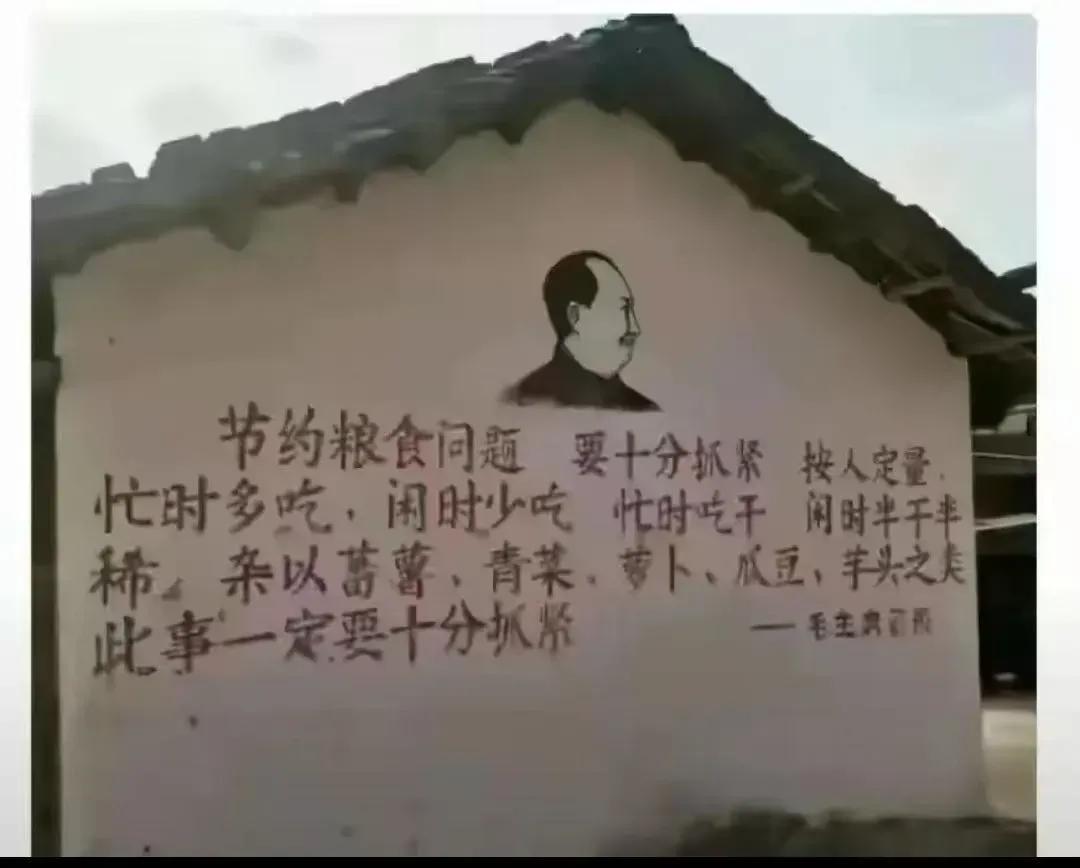 节约粮食问题 要十分抓紧 按人定量.
忙时多吃，闲时少吃 忙时吃干 闲时半干半
稀。杂以蕃薯、青菜、萝卜、瓜豆、芋头之类
此事一定要十分抓紧
——毛主席